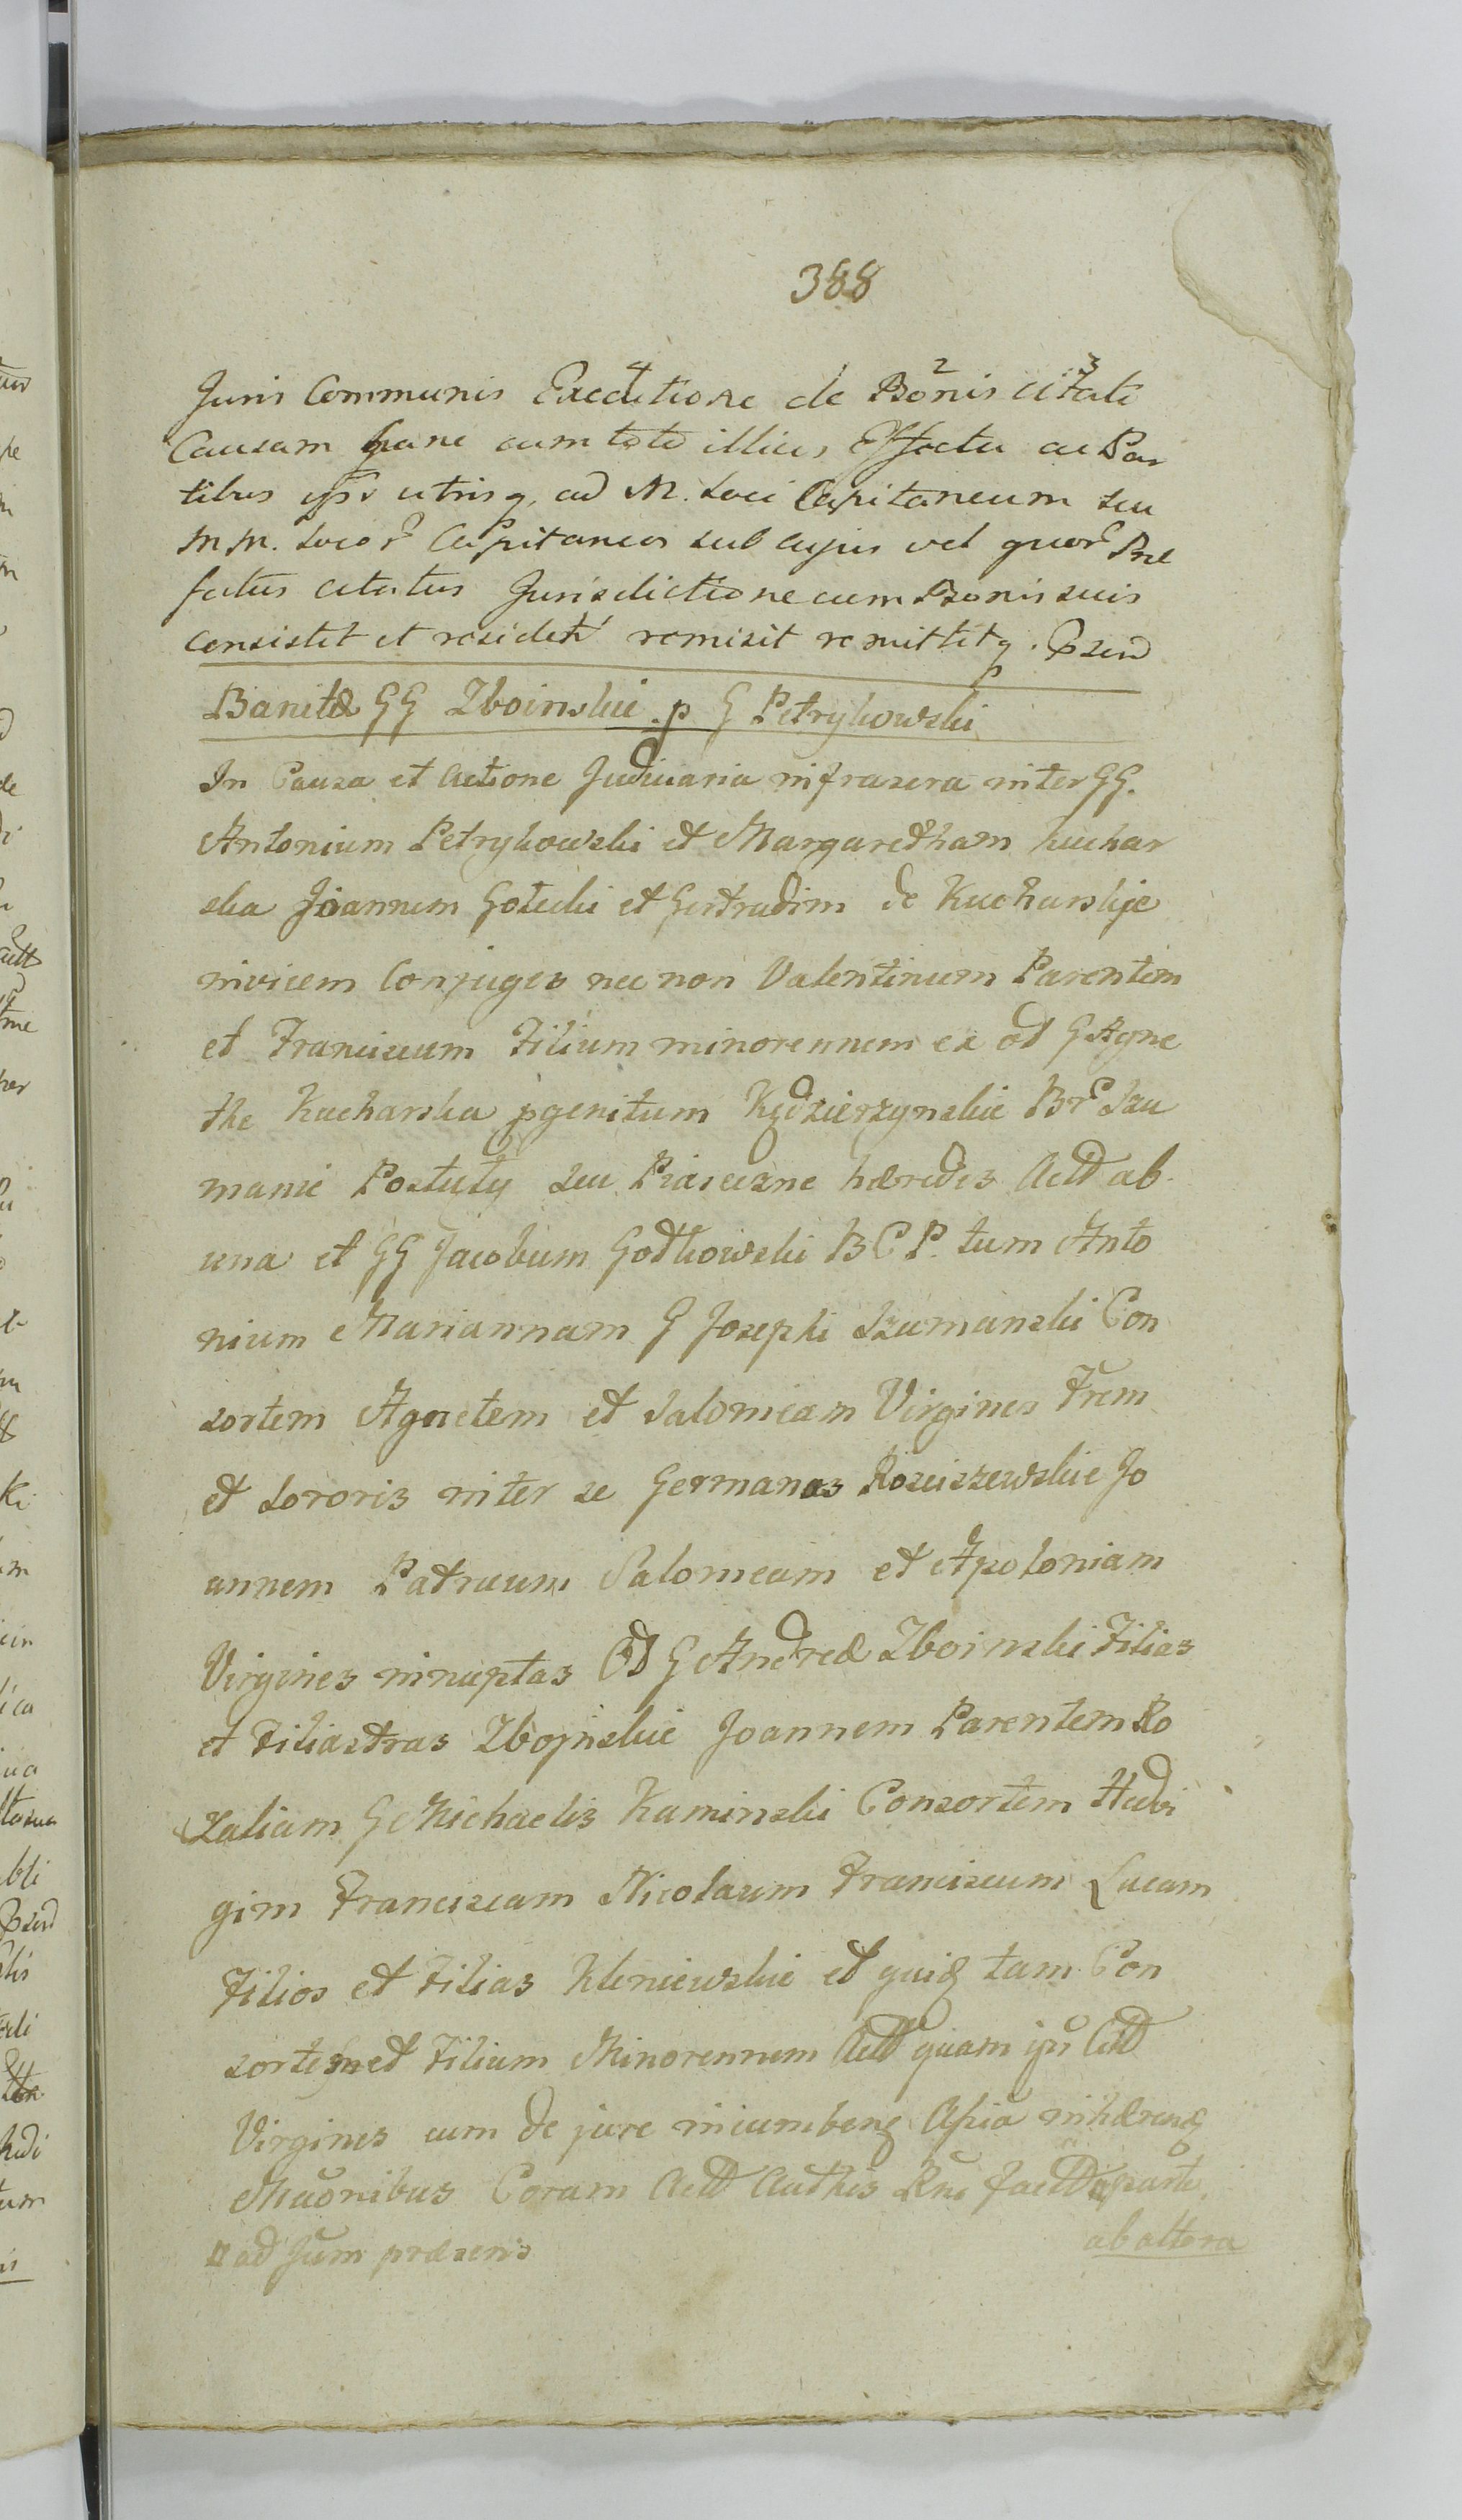 388
Juris Communis Executione de Bonis citati
Causam hanc cum toto illius Effectu ac Par
tibus ipsis utrisq, ad M. Loci Capitaneum seu
M M. Locor Capitaneos sub cujus vel quor Pre
fatus citatus Jurisdictione cum Bonis suis
consistit et residet remisit remittitq. Pszen
Banitæ GG Zboinskie p G Petrykowski
In Causa et Actione Judiciaria infrascra inter GG.
Antonium Petrykowski et Margaretham Kuchar
ska Joannem Gotecki et Gertrudim de Kucharskje
invicem Conjuges nec non Valentinum Parentem
et Franciscum Filium minorennem ex od G Agne
the Kucharska pgenitum Kędzierzynskie Br Szu
manie Postuty seu Piaseczne hæredes Actt ab
una et GG Jacobum Godkowski B C P. tum Anto
nium Mariannam G Josephi Szumanski Con
sortem Agnetem et Salomeam Virgines Frem
et Sororis inter se Germanas Rosciszewskie Jo
annem Patruum Salomeam et Apoloniam
Virgines innuptas Od G Andreæ Zboinski Filias
et Filiastras Zbojnskie Joannem Parentem Ro
zaliam G Michaelis Kaminski Consortem Hedvi
gim Franciscam Nicolaum Franciscum Lucam
Filios et Filias Kleniewskie et quiq tam Con
sortem et Filium Minorennem Actt quam ipi Citt
Virgines cum de jure incumbenq Assia inhærenq
Muonibus Coram Actt Authis Rni factt aparte
ad Jum præsens
ab altera